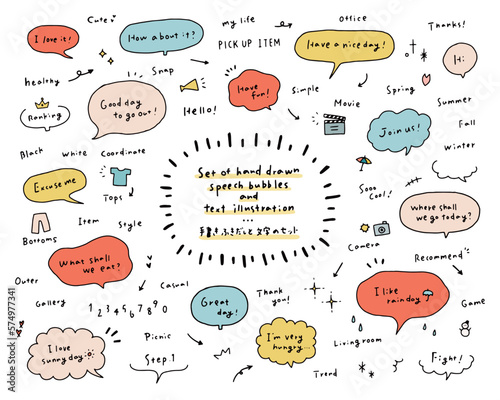 I love it!
Cute
How about it?
my life
PICK UP ITEM
Office
Have a nice day!
Thanks!
Hi
healthy
Snap
Ranking
Good day
to go out!
Hello!
Have
fun!
Simple
Movie
Spring
Summer
Join us!
Fall
Winter
Black
White
Coordinate
Excuse me
Tops
Set of hand drawn
speech bubbles
and
text illustration
...
手書きふきだしと文字のセット
Sooo
Cool!
Where shall
we go today?
Bottoms
Item
Style
Camera
What shall
we eat?
Recommend
Outer
Gallery
1 2 3 4 5 6 7 8 9 0
Casual
Great
day!
Thank
you!
I like
rain day
Game
I love
sunny day
Picnic
Step.1
I'm very
hungry...
Living room
Trend
Fight!
Adobe Stock | #574977341